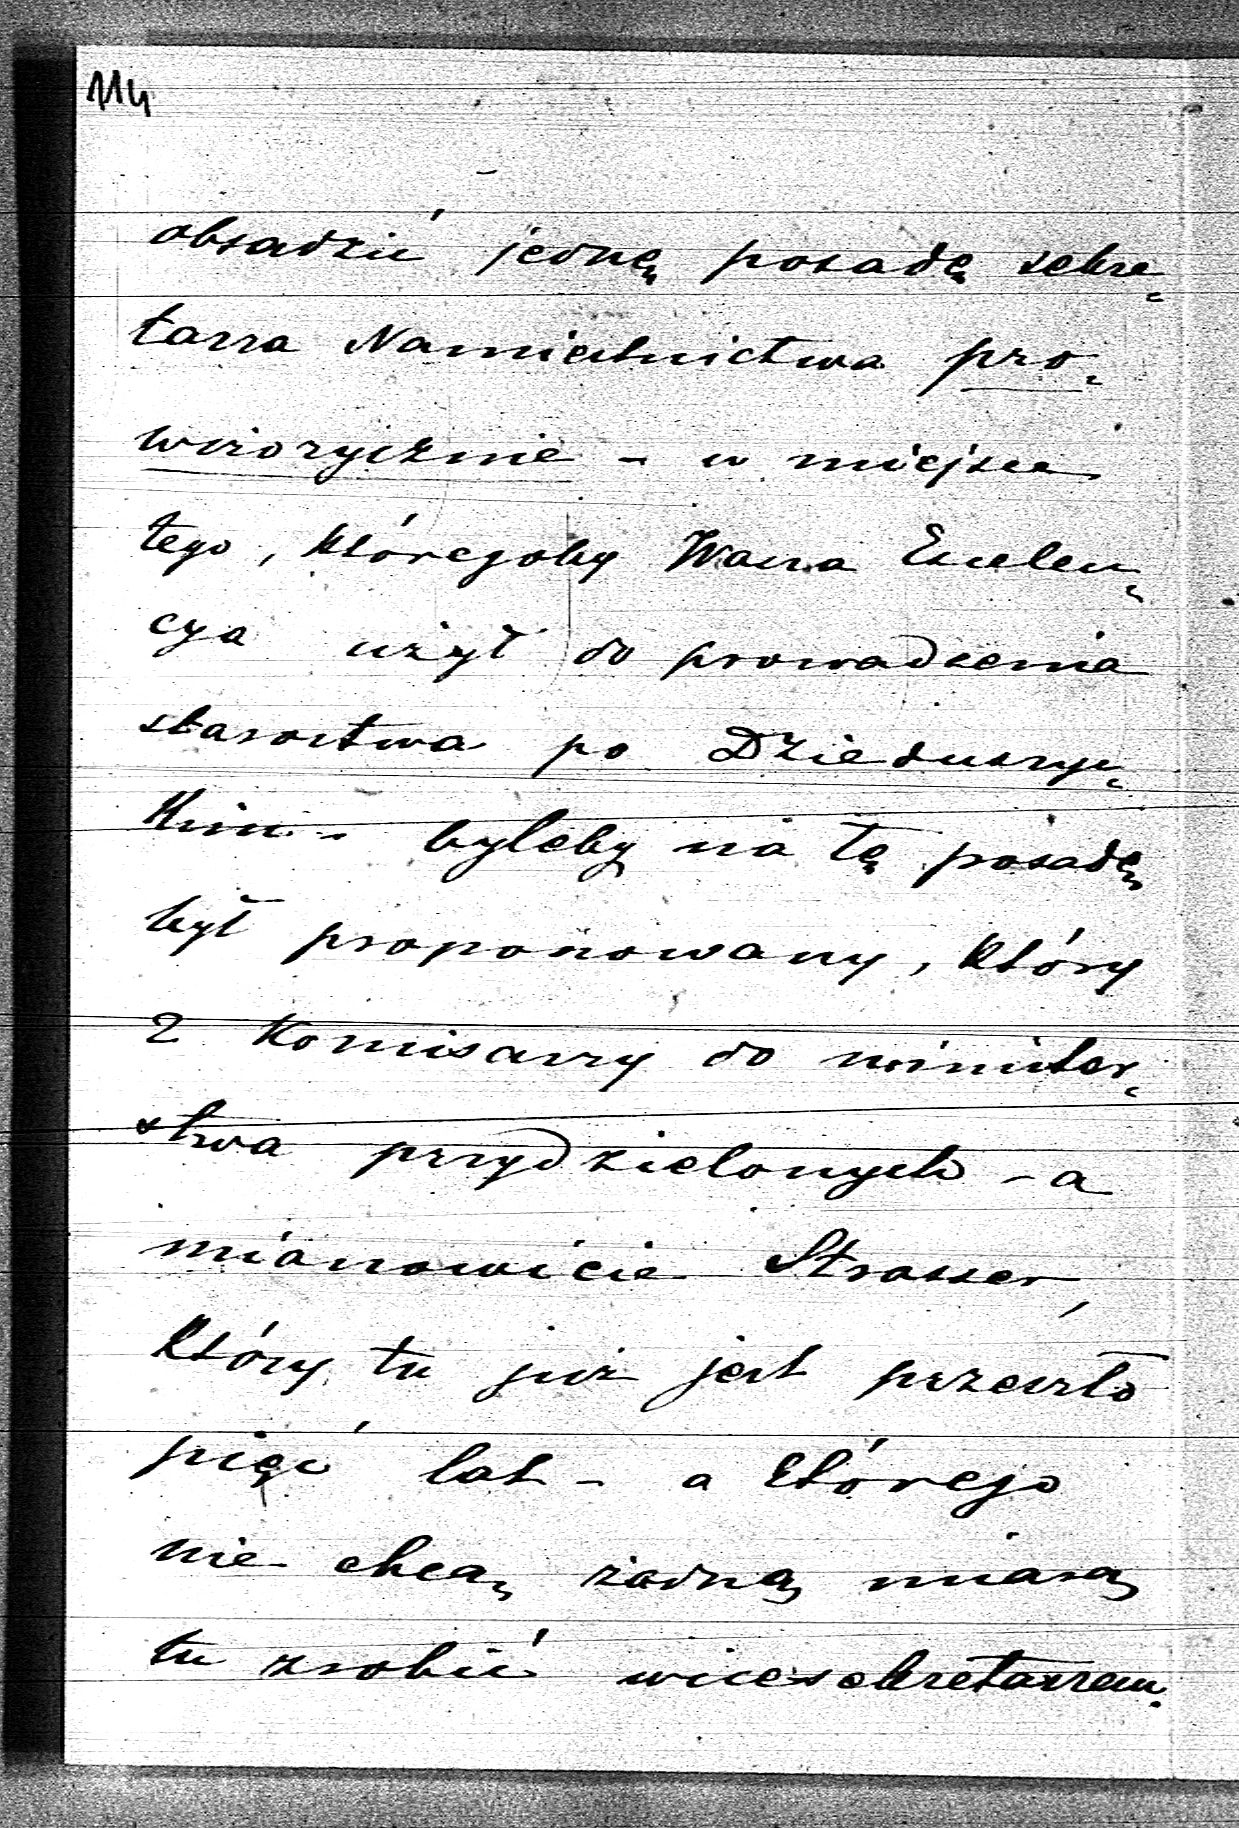 114
obsadzić jedną posadę sekre„
tarza Namiestnictwa pro„
wizorycznie – w miejsce
tego, któregoby Wasza Excelen„
cya użył do prowadzenia
starostwa po Dzieduszyc„
kim – byleby na tę posadę
był proponowany, który
z komisarzy do minister„
stwa przydzielonych – a
mianowicie Strasser,
który tu już jest przeszło
pięć lat – a którego
nie chcą żadną miarą
tu zrobić wicesekretarzem.